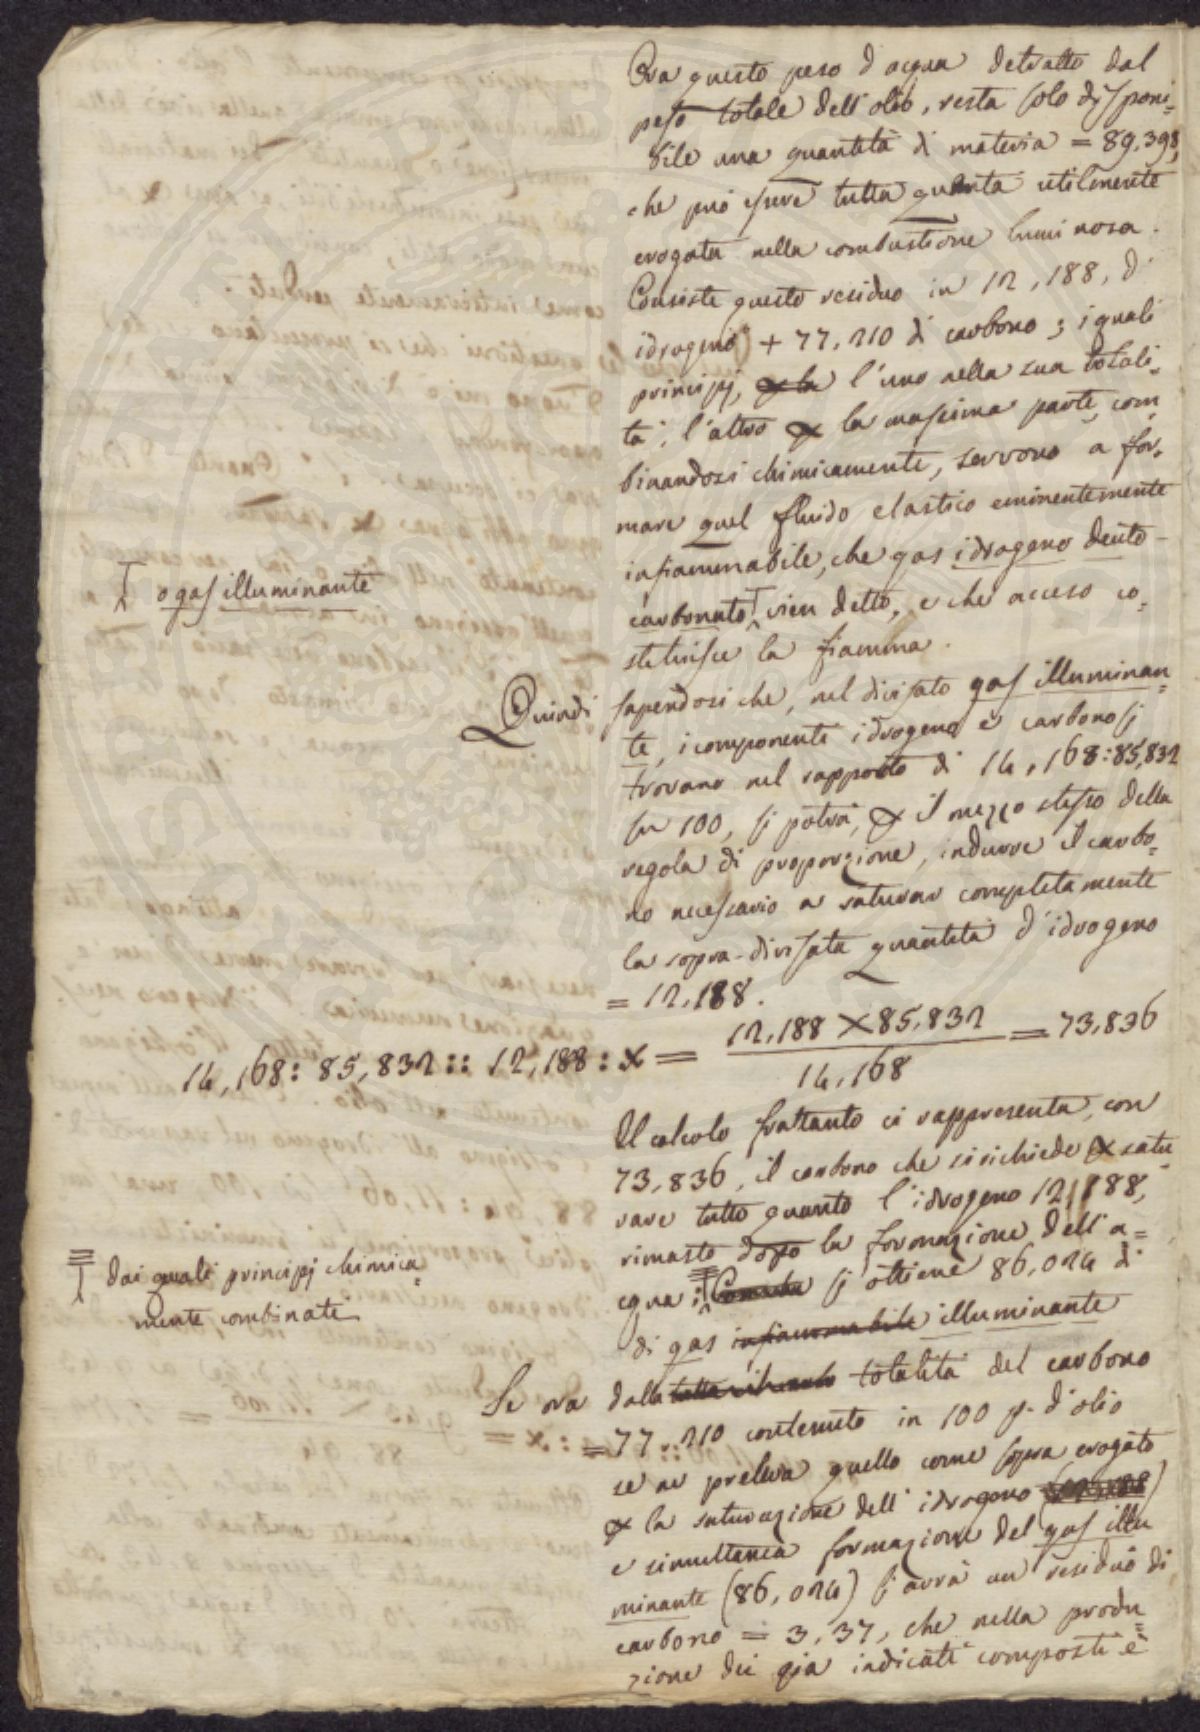 Ora questo peso d'acqua detratto dal
peso totale dell'olio, resta solo disponi=
bile una quantità di materia = 89.398,
che può essere tutta quanta utilmente
erogata nella combustione luminosa.
Consiste questo residuo in 12,188, d'
idrogeno + 77,210 di carbono; i quali
principj, l'uno nella sua totali=
tà, l'altro la massima parte, com
binandosi chimicamente, servono a for=
mare quel fluido elastico eminentemente
infiammabile, che gas idrogeno deuto-
o gas illuminante
carbonato vien detto, e che acceso co=
stituisce la fiamma.
Quindi sapendosi che, nel divisato gas illuminan=
te, i componenti idrogeno e carbono si
trovano nel rapporto di 14,168:85,832
su 100, si potrà, il mezzo stesso della
regola di proporzione, indurre il carbo=
no necessario a saturar completamente
la sopra-divisata quantità d'idrogeno
= 12,188.
14,168: 85,832:: 12,188: x = 12,188 × 85,832 = 73,836
14,168
Il calcolo frattanto ci rappresenta, con
73,836, il carbono che si richiede satu
rare tutto quanto l'idrogeno 12,188,
rimasto dopo la formazione dell'a=
dai quali principj chimica=
mente combinati
cqua; si ottiene 86,024 di
di gas infiammabile illuminante
Se ora dalla totalità del carbono
= 77,210 contenuto in 100 p. d'olio
se ne preleva quello come sopra erogato
la saturazione dell'idrogeno
e simultanea formazione del gas illu
minante (86,024) si avrà un residuo di
carbono = 3,37, che nella produ=
zione dei già indicati composti è